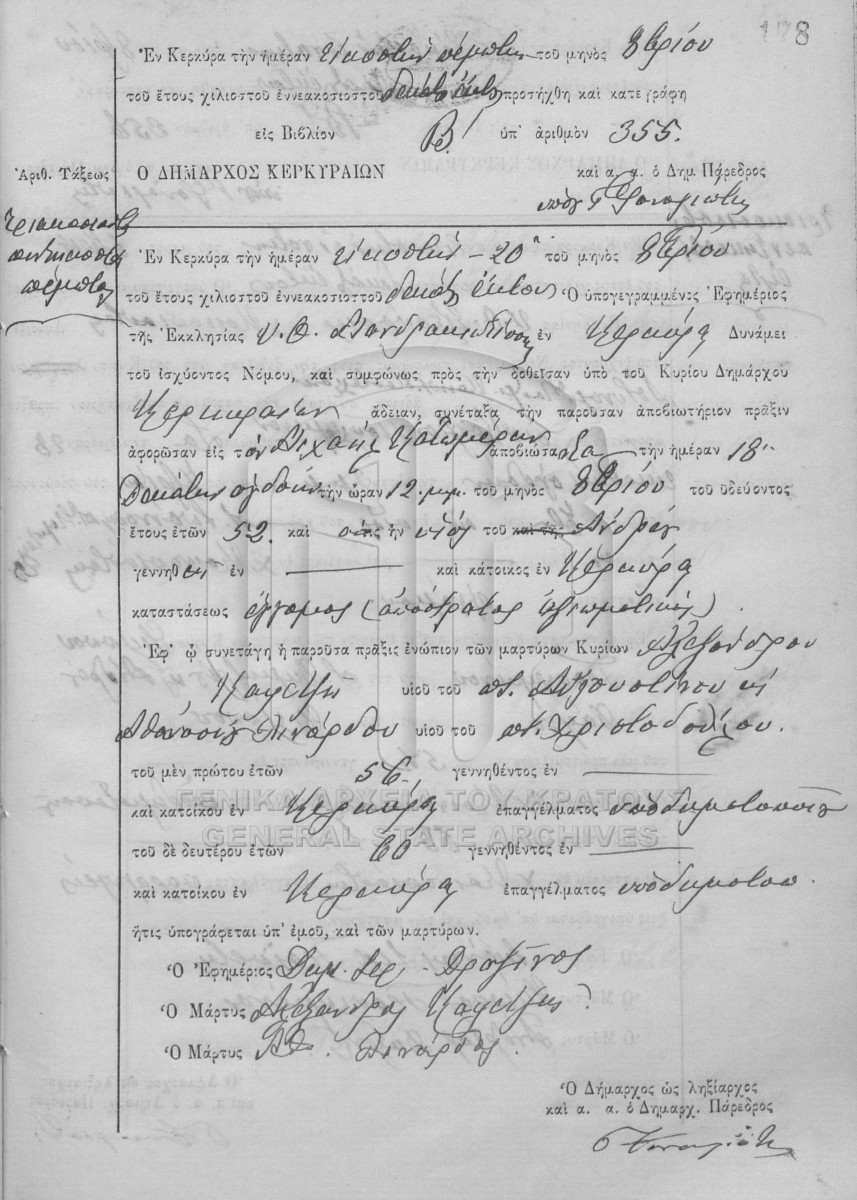 178
Ἐν Κερκύρᾳ τὴν ἡμέραν εἰκοστὴν πέμπτην τοῦ μηνὸς 8βρίου
τοῦ ἔτους χιλιοστοῦ ἐννεακοσιοστοῦ δεκάτου ἕκτου προσήχθη καὶ κατεγράφη
εἰς Βιβλίον Β! ὑπ' ἀριθμὸν 355.
Ἀριθ. Τάξεως Ο ΔΗΜΑΡΧΟΣ ΚΕΡΚΥΡΑΙΩΝ καὶ α. α. ὁ Δημ. Πάρεδρος
τριακοσιοστὸς
πεντηκοστὸς
πέμπτος
Ἐν Κερκύρᾳ τὴν ἡμέραν εἰκοστὴν - 20ην τοῦ μηνὸς 8βρίου
τοῦ ἔτους χιλιοστοῦ ἐννεακοσιοστοῦ δεκάτου ἕκτου Ὁ ὑπογεγραμμένος Ἐφημέριος
τῆς Ἐκκλησίας Υ. Θ. Μανδρακιωτίσσης ἐν Κερκύρᾳ Δυνάμει
τοῦ ἰσχύοντος Νόμου, καὶ συμφώνως πρὸς τὴν δοθεῖσαν ὑπὸ τοῦ Κυρίου Δημάρχου
Κερκυραίων ἄδειαν, συνέταξα τὴν παροῦσαν ἀποβιωτήριον πρᾶξιν
ἀφορῶσαν εἰς τὸν Μιχαὴλ Κατωμέρην ἀποβιώσαντα τὴν ἡμέραν 18ην
Δεκάτην ὀγδόην τὴν ὥραν 12. μ.μ. τοῦ μηνὸς 8βρίου τοῦ ὁδεύοντος
ἔτους ἐτῶν 52. καὶ ὅστις ἦν υἱὸς τοῦ καὶ τῆς Ἀνδρέου
γεννηθεὶς ἐν καὶ κάτοικος ἐν Κερκύρᾳ
καταστάσεως ἔγγαμος (ἀπόστρατος ἀξιωματικός).
Ἐφ' ᾧ συνετάγη ἡ παροῦσα πρᾶξις ἐνώπιον τῶν μαρτύρων Κυρίων Ἀλεξάνδρου
Καφετζῆ υἱοῦ τοῦ ποτ. Αὐγουστίνου καὶ
Ἀθανασίου Λινάρδου υἱοῦ τοῦ ποτ. Χριστοδούλου.
τοῦ μὲν πρώτου ἐτῶν 56 γεννηθέντος ἐν
καὶ κατοίκου ἐν Κερκύρᾳ ἐπαγγέλματος ὑποδηματοποιοῦ
τοῦ δὲ δευτέρου ἐτῶν 60 γεννηθέντος ἐν
καὶ κατοίκου ἐν Κερκύρᾳ ἐπαγγέλματος ὑποδηματοπ.
ἥτις ὑπογράφεται ὑπ' ἐμοῦ, καὶ τῶν μαρτύρων.
Ὁ Ἐφημέριος Δημ. Ἱερ.
Ὁ Μάρτυς Ἀλέξανδρος Καφετζῆς
Ὁ Μάρτυς Ἀθ. Λινάρδος.
Ὁ Δήμαρχος ὡς ληξίαρχος
καὶ α. α. ὁ Δημαρχ. Πάρεδρος
ΓΕΝΙΚΑ ΑΡΧΕΙΑ ΤΟΥ ΚΡΑΤΟΥΣ
GENERAL STATE ARCHIVES